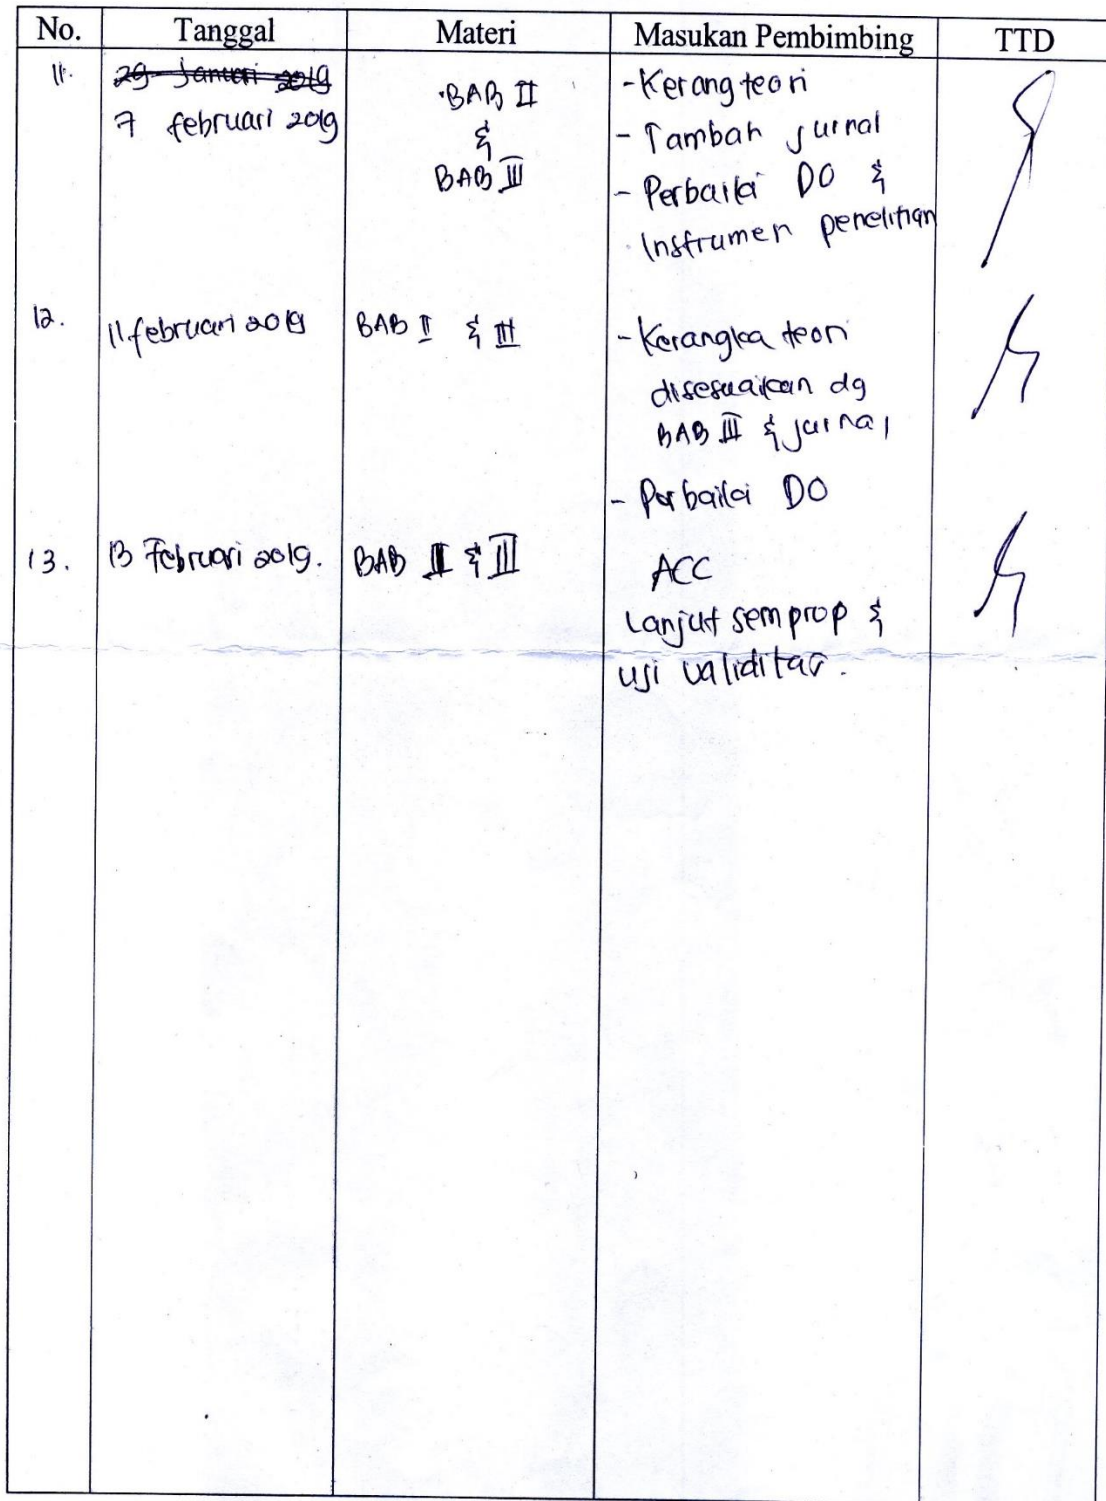 No. Tanggal Materi Masukan Pembimbing TTD
11. 29 Januari 2019 BAB II - Kerang teori
7 februari 2019 & - Tambah jurnal
BAB III - Perbaiki DO &
Instrumen penelitian
12. 11 februari 2019 BAB II & III - Kerangka teori
disesuaikan dg
BAB III & jurnal
- Perbaiki DO
13. 13 Februari 2019. BAB II & III ACC
Lanjut semprop &
uji validitas.